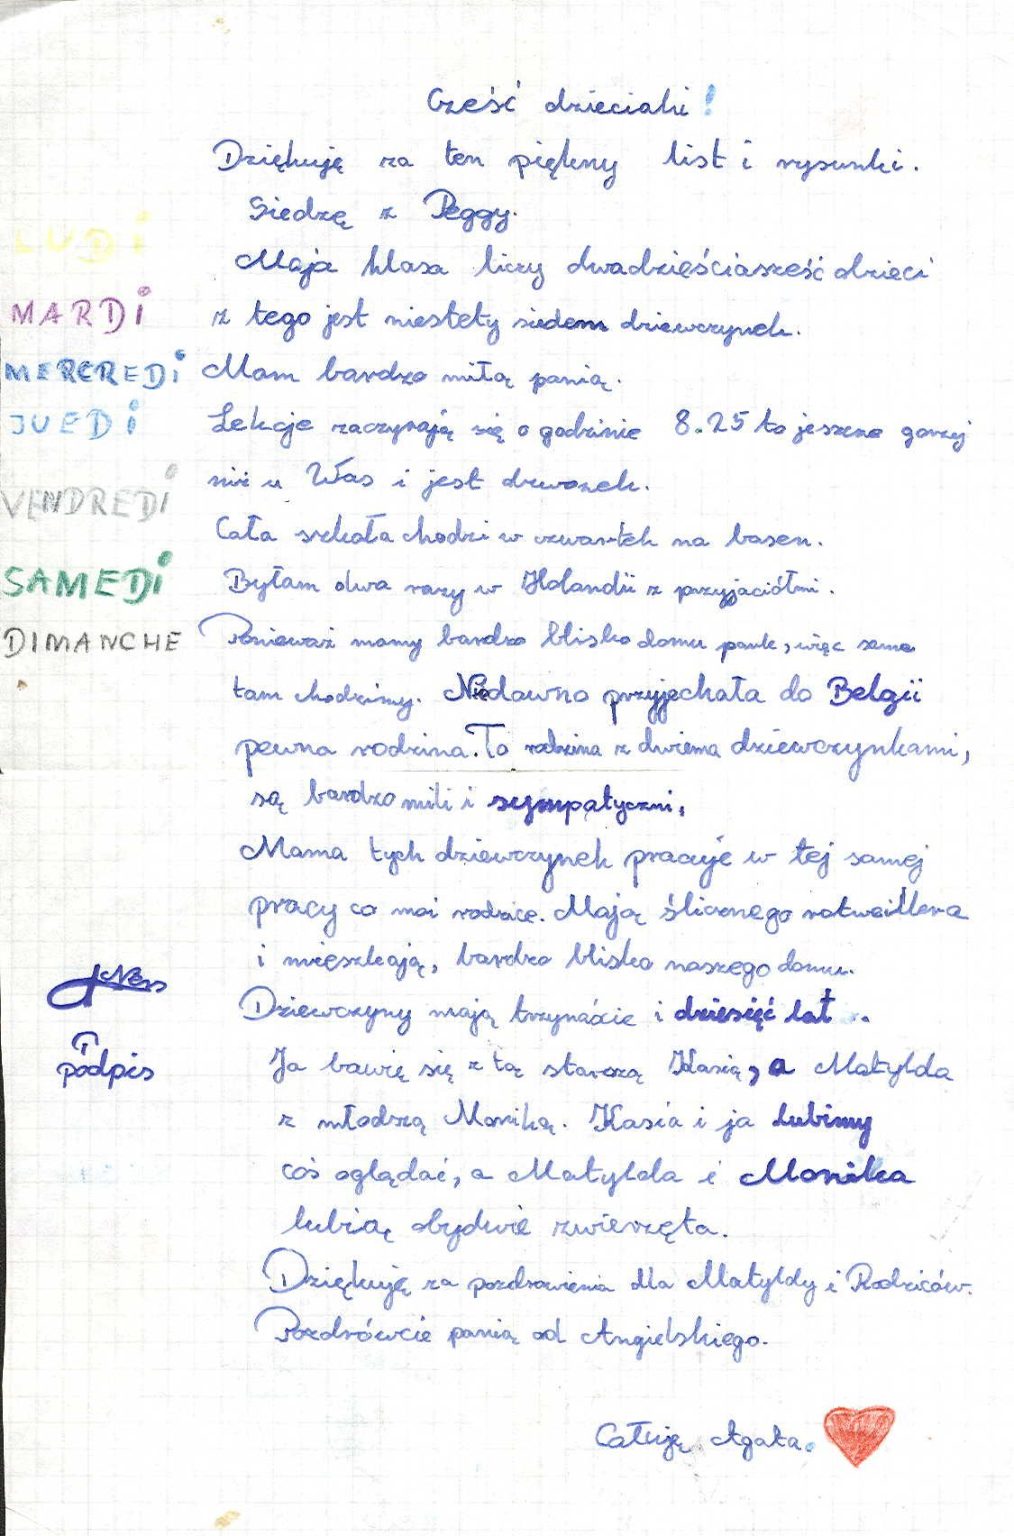 Cześć dzieciaki!
Dziękuję za ten piękny list i rysunki.
Siedzę z Peggy.
LUDI
Moja klasa liczy dwadzięściasześć dzieci
MARDI
z tego jest niestety siedem dziewczynek.
MERCREDI
Mam bardzo miłą panią.
JUEDI
Lekcje zaczynają się o godzinie 8.25 to jeszcze gorzej
VENDREDI
niż u Was i jest dzwonek.
Cała szkoła chodzi w czwartek na basen.
SAMEDI
Byłam dwa razy w Holandii z przyjaciółmi.
DIMANCHE
Ponieważ mamy bardzo blisko domu park, więc same
tam chodzimy. Niedawno przyjechała do Belgii
pewna rodzina. To rodzina z dwiema dziewczynkami,
są bardzo mili i sympatyczni,
Mama tych dziewczynek pracuje w tej samej
pracy co moi rodzice. Mają ślicznego rotweillera
i mięszkają, bardzo blisko naszego domu.
Dziewczyny mają trzynaście i dziesięć lat.
podpis
Ja bawię się z tą starszą Kasią, a Matylda
z młodszą Moniką. Kasia i ja lubimy
coś oglądać, a Matylda i Monika
lubią obydwie zwierzęta.
Dziękuję za pozdrowienia dla Matyldy i Rodziców.
Pozdrówcie panią od Angielskiego.
Całuję Agata.